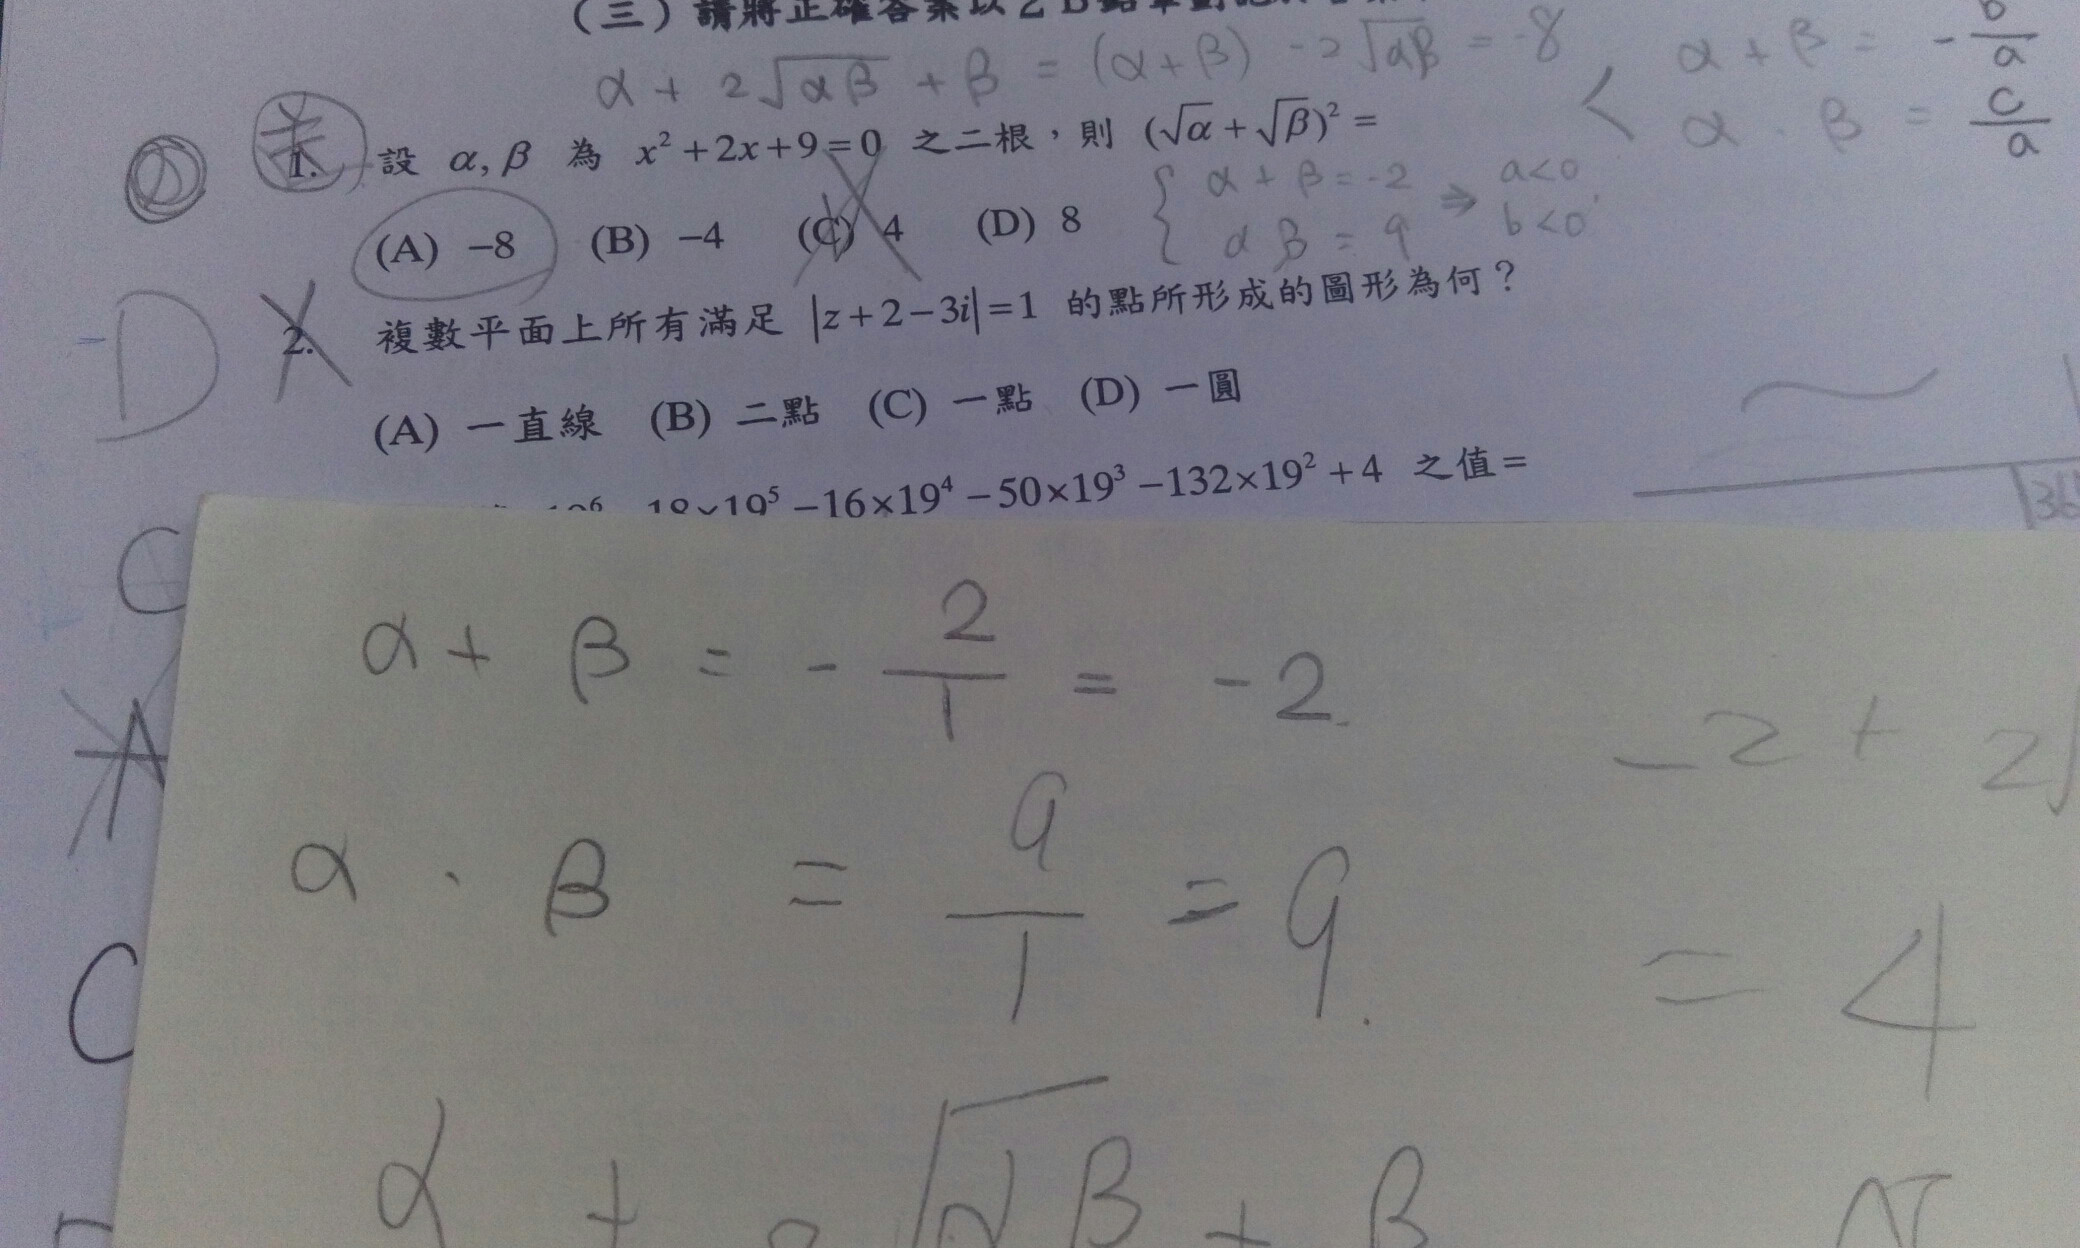 (三)請將正確答案以2B鉛筆劃
α + 2√αβ + β = (α+β) -2√αβ = -8
α + β = - b/a
α · β = c/a
1. 設 α, β 為 x² + 2x + 9 = 0 之二根，則 (√α + √β)² =
{ α + β = -2 ⇒ a<0
α β = 9 b<0
(A) −8 (B) −4 (C) 4 (D) 8
D
2. 複數平面上所有滿足 |z + 2 − 3i| = 1 的點所形成的圖形為何？
(A) 一直線 (B) 二點 (C) 一點 (D) 一圓
19⁶ 18×19⁵ −16×19⁴ −50×19³ −132×19² +4 之值=
36
C
α + β = - 2/1 = -2
-2 + 2√
A
α · β = 9/1 = 9.
= 4
C
α + √αβ + β